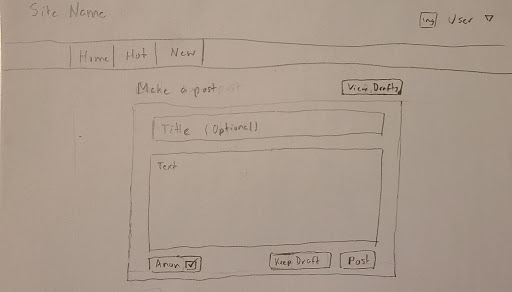 Site Name
ing User
Home Hot New
Make a post
View Drafts
Title (Optional)
Text
Anon
Keep Draft
Post